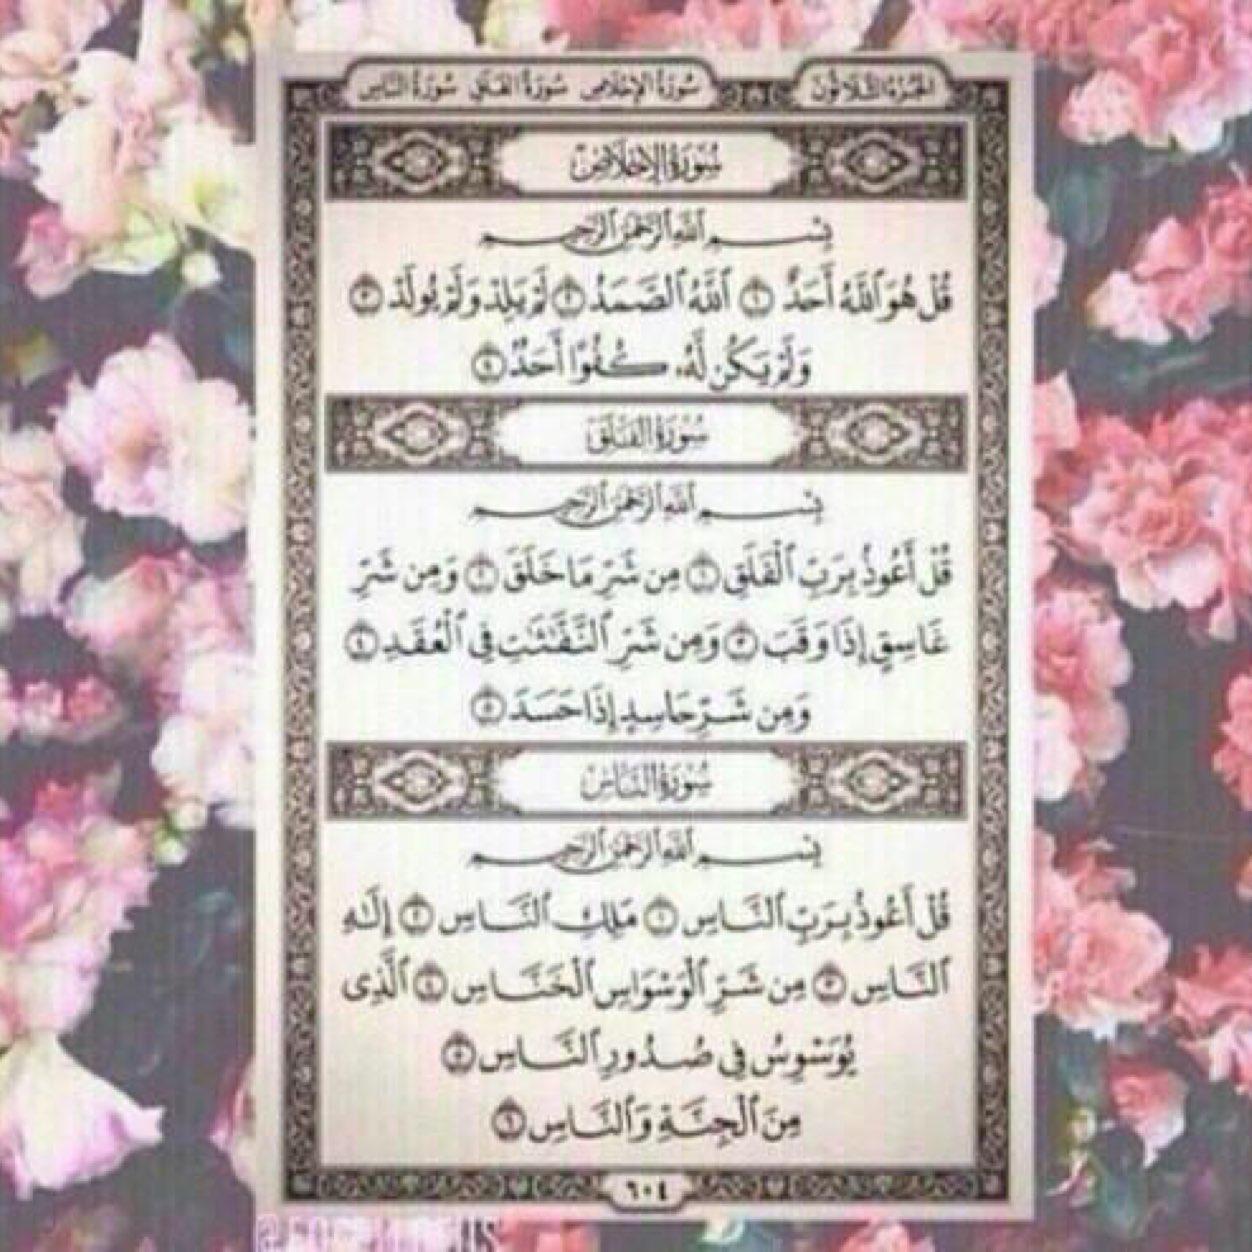 الجزء الثلاثون سورة الإخلاص سورة الفلق سورة الناس
سُورَةُ الإِخْلَاصِ
بِسْمِ ٱللَّهِ ٱلرَّحْمَٰنِ ٱلرَّحِيمِ
قُلْ هُوَ ٱللَّهُ أَحَدٌ ١ ٱللَّهُ ٱلصَّمَدُ ٢ لَمْ يَلِدْ وَلَمْ يُولَدْ ٣
وَلَمْ يَكُن لَّهُۥ كُفُوًا أَحَدٌۢ ٤
سُورَةُ الفَلَقِ
بِسْمِ ٱللَّهِ ٱلرَّحْمَٰنِ ٱلرَّحِيمِ
قُلْ أَعُوذُ بِرَبِّ ٱلْفَلَقِ ١ مِن شَرِّ مَا خَلَقَ ٢ وَمِن شَرِّ
غَاسِقٍ إِذَا وَقَبَ ٣ وَمِن شَرِّ ٱلنَّفَّٰثَٰتِ فِي ٱلْعُقَدِ ٤
وَمِن شَرِّ حَاسِدٍ إِذَا حَسَدَ ٥
سُورَةُ النَّاسِ
بِسْمِ ٱللَّهِ ٱلرَّحْمَٰنِ ٱلرَّحِيمِ
قُلْ أَعُوذُ بِرَبِّ ٱلنَّاسِ ١ مَلِكِ ٱلنَّاسِ ٢ إِلَٰهِ
ٱلنَّاسِ ٣ مِن شَرِّ ٱلْوَسْوَاسِ ٱلْخَنَّاسِ ٤ ٱلَّذِي
يُوَسْوِسُ فِي صُدُورِ ٱلنَّاسِ ٥
مِنَ ٱلْجِنَّةِ وَٱلنَّاسِ ٦
٦٠٤